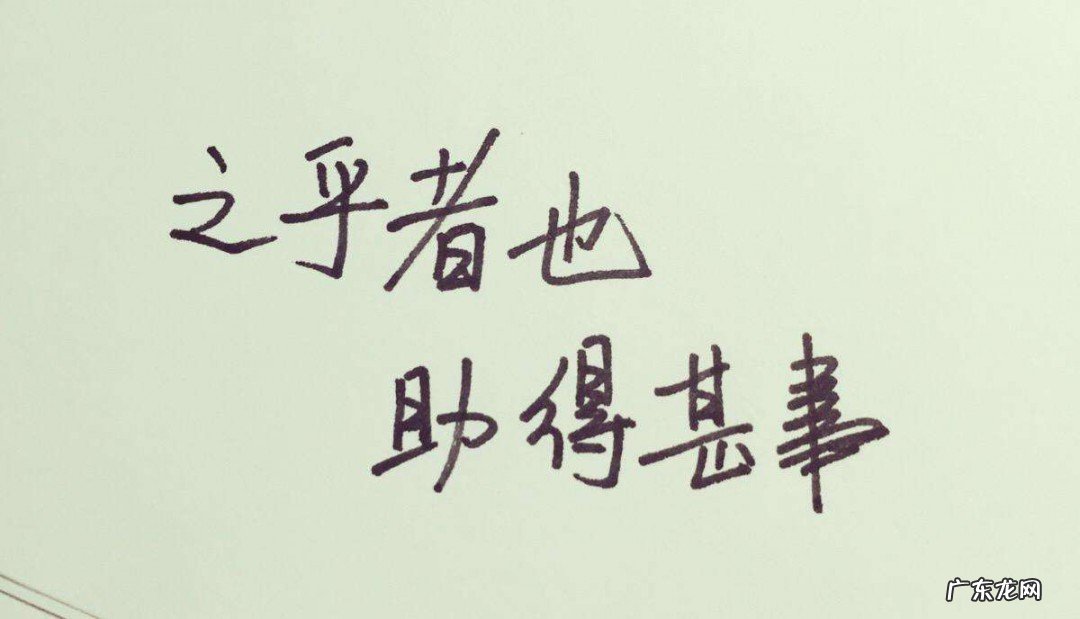 之乎者也
助得甚事
广东龙网